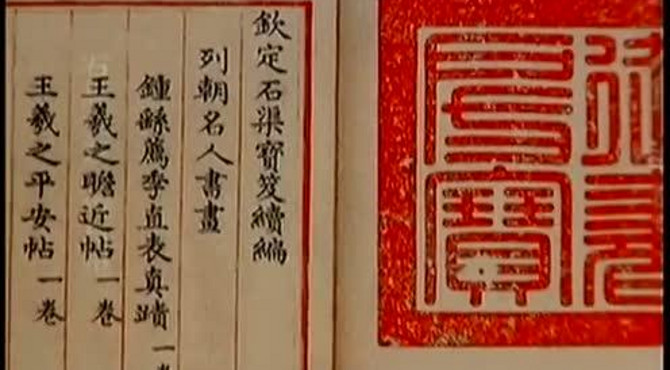 欽定石渠寶笈續編
列朝名人書畫
鍾繇薦季直表真蹟一卷
王羲之瞻近帖一卷
王羲之平安帖一卷
寶